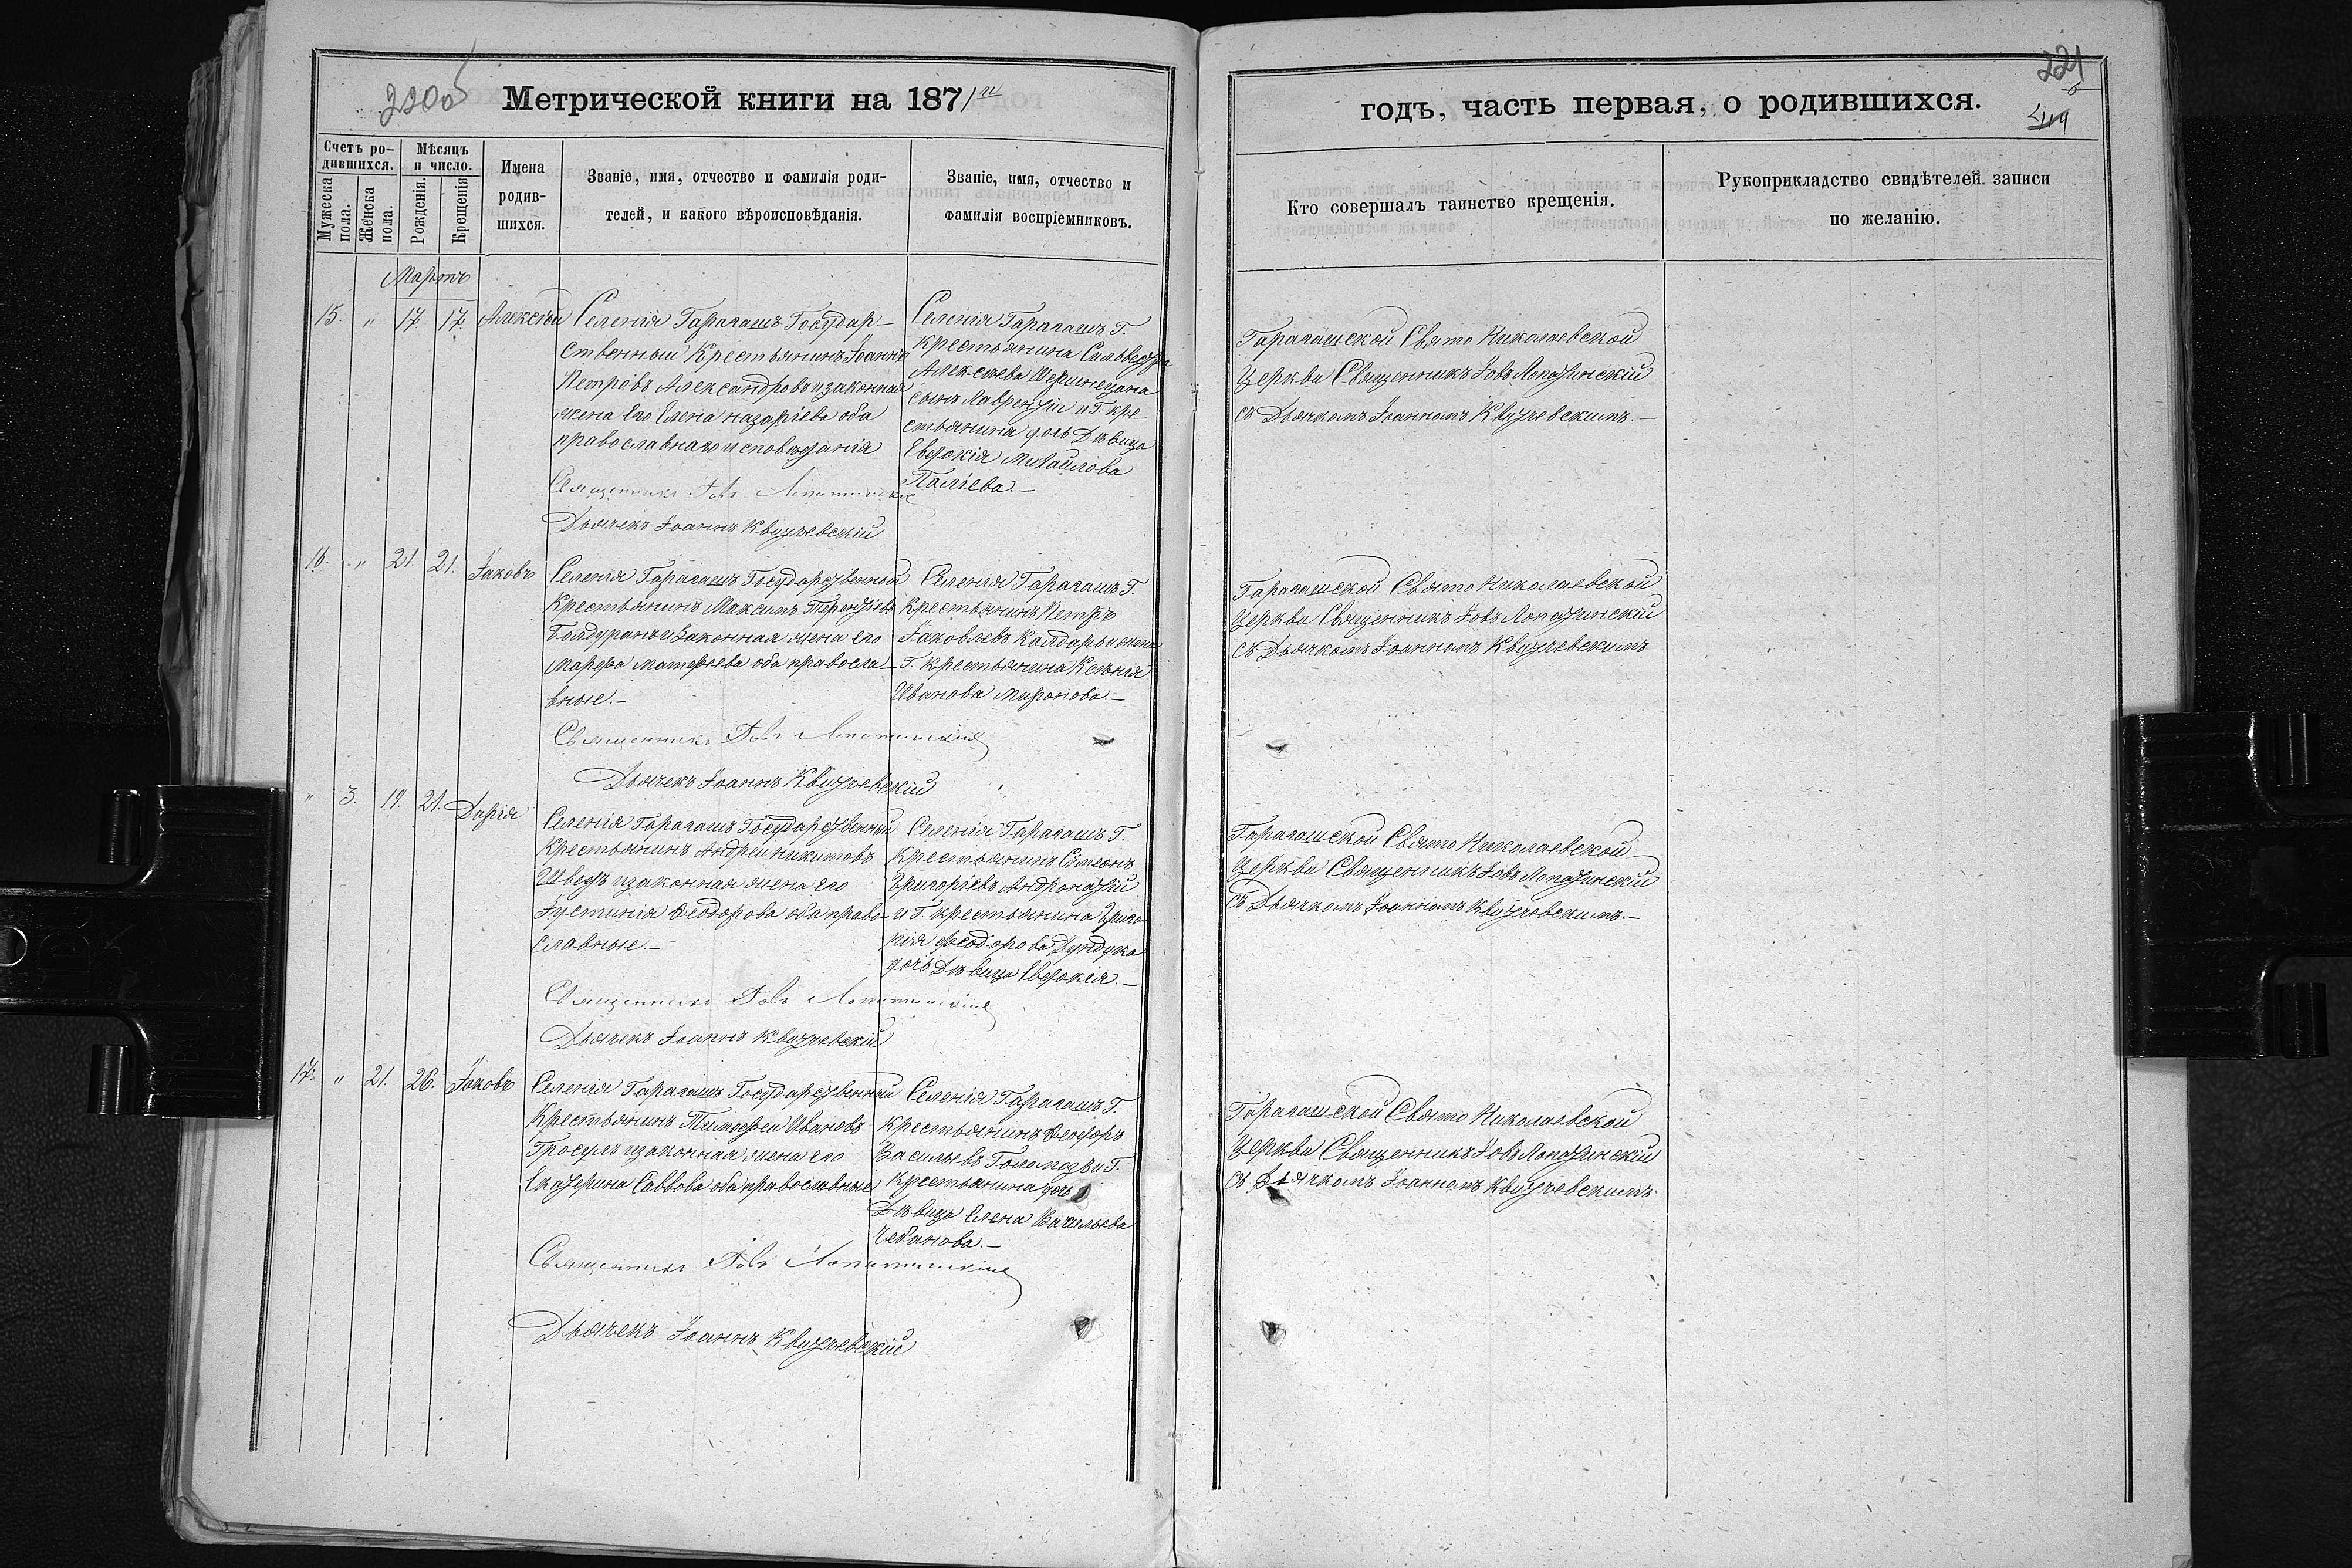 220об
Метрической книги на 1871й
Счетъ ро-
дившихся.
Мѣсяцъ
и число.
Мужеска
пола.
Женска
пола.
Рожденія.
Крещенія
Имена
родив-
шихся.
Званіе, имя, отчество и фамилія роди-
телей, и какого вѣроисповѣданія.
Званіе, имя, отчество и
фамилія воспріемниковъ.
Мартъ
15. „ 17. 17. Алексѣй
Селенія Гарагашъ Государ-
ственный Крестьянинъ Іоаннъ
Петровъ Александровъ и законная
жена Его Елена Назаріева оба
православнаго исповѣданія
Священникъ Іовъ Лопатинскій
Дьячекъ Іоаннъ Квитчевскій
Селенія Гарагашъ Г.
крестьянина Сильвестра
Алексѣева
сынъ Лаврентій и Г. кре-
стьянина дочь Дѣвица
Евдокія Михайлова
Паліева.—
16. „ 21. 21. Іаковъ
Селенія Гарагашъ Государственный
Крестьянинъ Максимъ Терентіевъ
Болдуранъ и Законная жена его
Марфа Матфеева оба правосла-
вные.—
Священникъ Іовъ Лопатинскій
Дьячекъ Іоаннъ Квитчевскій
Селенія Гарагашъ Г.
Крестьянинъ Петръ
Іаковлевъ Калдарь и жена
Г. Крестьянина Ксенія
Иванова Миронова.—
„ 3. 19. 21. Дарія
Селенія Гарагашъ Государственный
Крестьянинъ Андрей Никитовъ
Шведъ и законная жена его
Іустинія Ѳеодорова оба право-
славные.—
Священникъ Іовъ Лопатинскій
Дьячекъ Іоаннъ Квитчевскій
Селенія Гарагашъ Г.
Крестьянинъ Симеонъ
Григоріевъ Андронатій
и Г. крестьянина Григо-
рія Феодорова Дундука
дочь Дѣвица Евдокія.—
17. „ 21. 26. Іаковъ
Селенія Гарагашъ Государственный
Крестьянинъ Тимофей Ивановъ
Гросулъ и законная жена его
Екатерина Саввова оба православные
Священникъ Іовъ Лопатинскій
Дьячекъ Іоаннъ Квитчевскій
Селенія Гарагашъ Г.
Крестьянинъ Ѳеодоръ
Васильевъ Голомозъ и Г.
Крестьянина дочь
Дѣвица Елена Васильева
Чебанова.—
221
годъ, часть первая, о родившихся.
Кто совершалъ таинство крещенія.
Рукоприкладство свидѣтелей записи
по желанію.
Гарагашской Свято Николаевской
Церкви Священникъ Іовъ Лопатинскій
съ Дьячкомъ Іоанномъ Квитчевскимъ.—
Гарагашской Свято Николаевской
Церкви Священникъ Іовъ Лопатинскій
съ Дьячкомъ Іоанномъ Квитчевскимъ
Гарагашской Свято Николаевской
Церкви Священникъ Іовъ Лопатинскій
съ Дьячкомъ Іоанномъ Квитчевскимъ.—
Гарагашской Свято Николаевской
Церкви Священникъ Іовъ Лопатинскій
съ Дьячкомъ Іоанномъ Квитчевскимъ